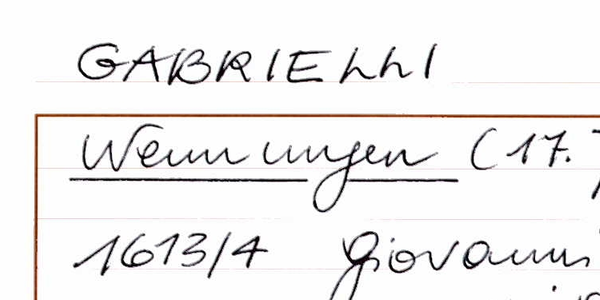 GABRIELLI
Wennungen (17.
1613/4 Giovanni